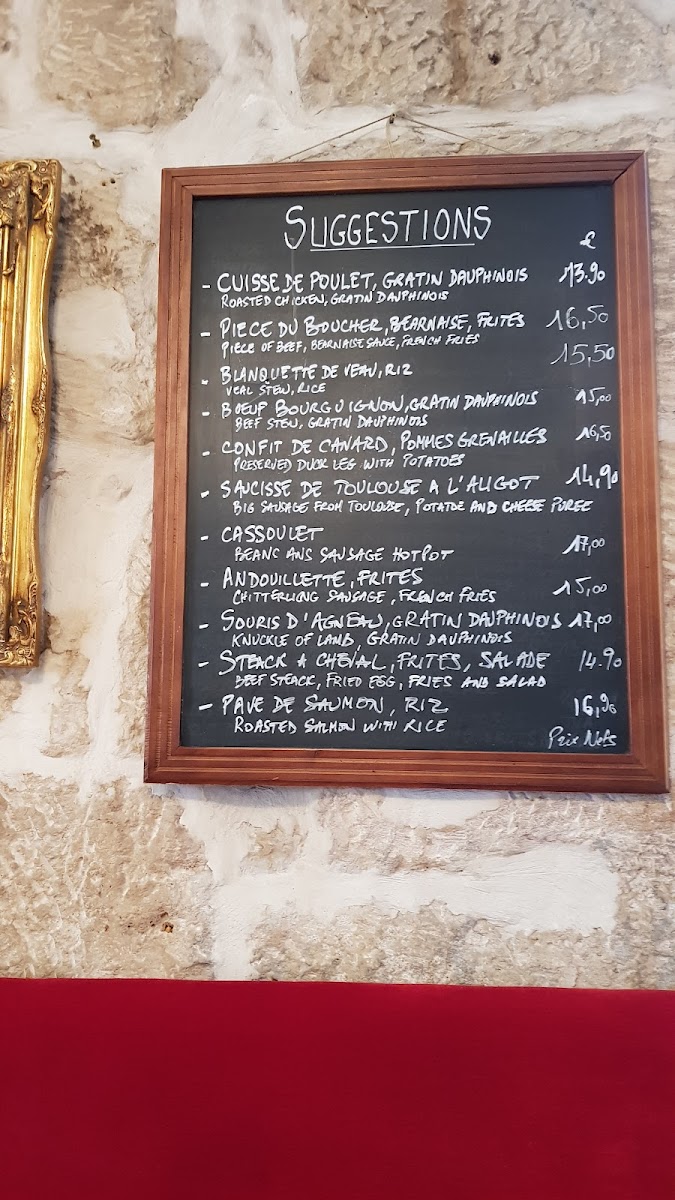 SUGGESTIONS
€
- CUISSE DE POULET, GRATIN DAUPHINOIS 13.90
ROASTED CHICKEN, GRATIN DAUPHINOIS
- PIECE DU BOUCHER, BEARNAISE, FRITES 16,50
PIECE OF BEEF, BEARNAISE SAUCE, FRENCH FRIES
- BLANQUETTE DE VEAU, RIZ 15,50
VEAL STEW, RICE
- BOEUF BOURGUIGNON, GRATIN DAUPHINOIS 15,00
BEEF STEW, GRATIN DAUPHINOIS
- CONFIT DE CANARD, POMMES GRENAILLES 16,50
PRESERVED DUCK LEG WITH POTATOES
- SAUCISSE DE TOULOUSE A L'ALIGOT 14,90
BIG SAUSAGE FROM TOULOUSE, POTATOE AND CHEESE PUREE
- CASSOULET 17,00
BEANC ANS SAUSAGE HOTPOT
- ANDOUILLETTE, FRITES 15,00
CHITTERLING SAUSAGE, FRENCH FRIES
- SOURIS D'AGNEAU, GRATIN DAUPHINOIS 17,00
KNUCKLE OF LAMB, GRATIN DAUPHINOIS
- STEACK A CHEVAL, FRITES, SALADE 14.90
BEEF STEACK, FRIED EGG, FRIES AND SALAD
- PAVE DE SAUMON, RIZ 16,90
ROASTED SALMON WITH RICE
Prix Nets